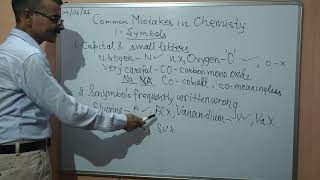 04/06/21
Common Mistakes in Chemistry
1- Symbols
1 Capital & small letters
Nitrogen - N✓ n x, Oxygen - O✓, o - x
Very careful - CO - carbon monoxide
Co - cobalt, co - meaningless
2 Symbols frequently written wrong
Fluorine - F✓ x, Vanandium - V✓, Va x